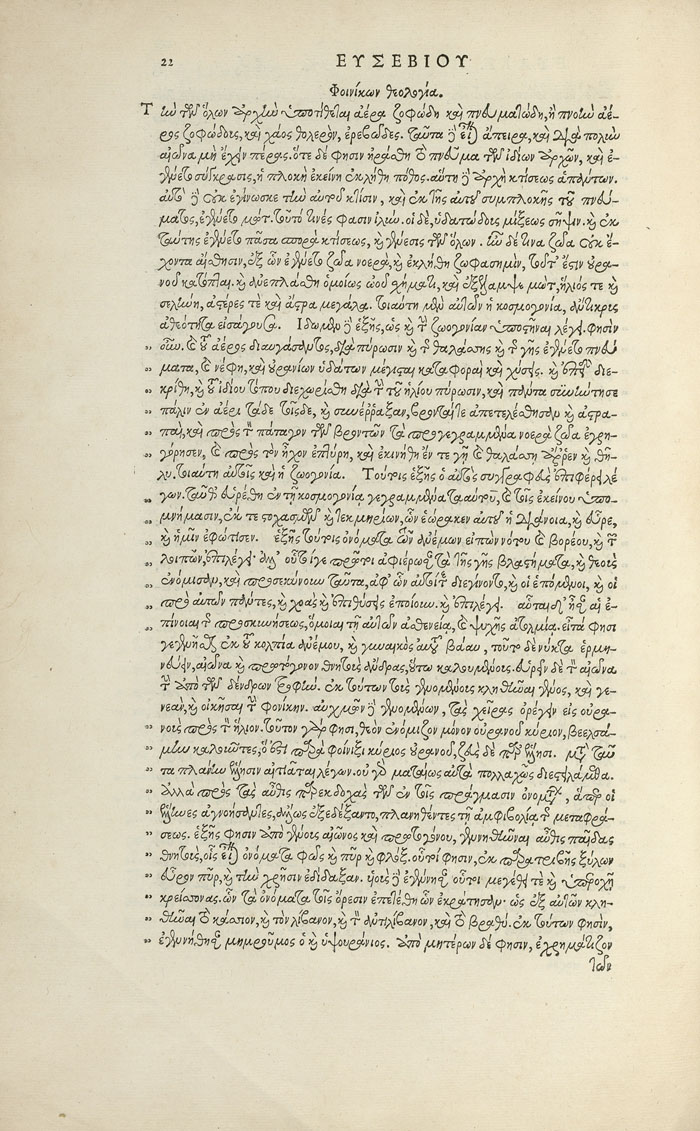 22
ΕΥΣΕΒΙΟΥ
Φοινίκων θεολογία.
Τὴν τῶν ὅλων ἀρχὴν ὑποτίθεται ἀέρα ζοφώδη καὶ πνευματώδη, ἢ πνοὴν ἀέ-
ρος ζοφώδους, καὶ χάος θολερὸν, ἐρεβῶδες. ταῦτα δὲ εἶναι ἄπειρα, καὶ διὰ πολὺν
αἰῶνα μὴ ἔχειν πέρας. ὅτε δέ φησιν ἠράσθη τὸ πνεῦμα τῶν ἰδίων ἀρχῶν, καὶ ἐ-
γένετο σύγκρασις, ἡ πλοκὴ ἐκείνη ἐκλήθη πόθος. αὕτη δὲ ἀρχὴ κτίσεως ἁπάντων.
αὐτὸ δὲ οὐκ ἐγίνωσκε τὴν αὐτοῦ κτίσιν, καὶ ἐκ τῆς αὐτοῦ συμπλοκῆς τοῦ πνεύ-
ματος, ἐγένετο μώτ. τοῦτό τινές φασιν ἰλύν. οἱ δὲ, ὑδατώδους μίξεως σῆψιν. καὶ ἐκ
ταύτης ἐγένετο πᾶσα σπορὰ κτίσεως, καὶ γένεσις τῶν ὅλων. ἦν δέ τινα ζῶα οὐκ ἔ-
χοντα αἴσθησιν, ἐξ ὧν ἐγένετο ζῶα νοερὰ, καὶ ἐκλήθη ζωφασημὶν, τοῦτ' ἔστιν οὐρα-
νοῦ κατόπται. καὶ ἀνεπλάσθη ὁμοίως ὠοῦ σχήματι, καὶ ἐξέλαμψε μὼτ, ἥλιός τε καὶ
σελήνη, ἀστέρες τε καὶ ἄστρα μεγάλα. τοιαύτη μὲν αὐτῶν ἡ κοσμογονία, ἄντικρυς
ἀθεότητα εἰσάγουσα. Ἴδωμεν δὲ ἑξῆς, ὡς καὶ τὴν ζωογονίαν ὑποστῆναι λέγει. φησὶν
οὖν. καὶ τοῦ ἀέρος διαυγάσαντος, διὰ πύρωσιν καὶ τῆς θαλάσσης καὶ τῆς γῆς ἐγένετο πνεύ
ματα, καὶ νέφη, καὶ οὐρανίων ὑδάτων μέγισται καταφοραὶ καὶ χύσεις. καὶ ἐπειδὴ διε-
κρίθη, καὶ τοῦ ἰδίου τόπου διεχωρίσθη διὰ τὴν τοῦ ἡλίου πύρωσιν, καὶ πάντα συνήντησε
πάλιν ἐν ἀέρι τάδε τοῖσδε, καὶ συνέῤῥαξαν, βρονταί τε ἀπετελέσθησαν καὶ ἀστρα-
παὶ, καὶ πρὸς τὸν πάταγον τῶν βροντῶν τὰ προγεγραμμένα νοερὰ ζῶα ἐγρη-
γόρησεν, καὶ πρὸς τὸν ἦχον ἐπτύρη, καὶ ἐκινήθη ἔν τε γῇ καὶ θαλάσσῃ ἄῤῥεν καὶ θῆ-
λυ. τοιαύτη αὐτοῖς καὶ ἡ ζωογονία. Τούτοις ἑξῆς ὁ αὐτὸς συγγραφεὺς ἐπιφέρει λέ
γων. ταῦθ' εὑρέθη ἐν τῇ κοσμογονίᾳ γεγραμμένα τααύτου, καὶ τοῖς ἐκείνου ὑπο-
μνήμασιν, ἔκ τε στοχασμῶν καὶ τεκμηρίων, ὧν ἑώρακεν αὐτοῦ ἡ διάνοια, καὶ εὗρε,
καὶ ἡμῖν ἐφώτισεν. ἑξῆς τούτοις ὀνόματα τῶν ἀνέμων εἰπὼν νότου καὶ βορέου, καὶ τῶν
λοιπῶν, ἐπιλέγει· ἀλλ' οὗτοί γε πρῶτοι ἀφιέρωσαν τὰ τῆς γῆς βλαστήματα, καὶ θεοὺς
ἐνόμισαν, καὶ προσεκύνουν ταῦτα, ἀφ' ὧν αὐτοί τε διεγίνοντο, καὶ οἱ ἑπόμενοι, καὶ οἱ
πρὸ αὐτῶν πάντες, καὶ χοὰς καὶ ἐπιθύσεις ἐποίουν. καὶ ἐπιλέγει. αὗται δ' ἦσαν αἱ ἐ-
πίνοιαι τῆς προσκυνήσεως, ὅμοιαι τῇ αὐτῶν ἀσθενείᾳ, καὶ ψυχῆς ἀτολμίᾳ. εἶτά φησι
γεγενῆσθαι ἐκ τοῦ κολπία ἀνέμου, καὶ γυναικὸς αὐτοῦ βάαυ, τοῦτο δὲ νύκτα ἑρμη-
νεύειν, αἰῶνα καὶ πρωτόγονον θνητοὺς ἄνδρας, οὕτω καλουμένους. εὑρεῖν δὲ τὸν αἰῶνα
τὴν ἀπὸ τῶν δένδρων τροφήν. ἐκ τούτων τοὺς γενομένους κληθῆναι γένος, καὶ γε-
νεὰν, καὶ οἰκῆσαι τὴν Φοινίκην. αὐχμῶν δὲ γενομένων, τὰς χεῖρας ὀρέγειν εἰς οὐρα-
νοὺς πρὸς τὸν ἥλιον. τοῦτον γάρ φησι, θεὸν ἐνόμιζον μόνον οὐρανοῦ κύριον, βεελσά-
μην καλοῦντες, ὅ ἐστι παρὰ φοίνιξι κύριος οὐρανοῦ, ζεὺς δὲ παρ' ἕλλησι. μετὰ ταῦ
τα πλάνην ἕλλησιν αἰτιᾶται λέγων. οὐ γὰρ ματαίως αὐτὰ πολλαχῶς διεστειλάμεθα.
ἀλλὰ πρὸς τὰς αὖθις παρεκδοχὰς τῶν ἐν τοῖς πράγμασιν ὀνομάτων, ἅπερ οἱ
ἕλληνες ἀγνοήσαντες, ἄλλως ἐξεδέξαντο, πλανηθέντες τῇ ἀμφιβολίᾳ τῆς μεταφρά-
σεως. ἑξῆς φησὶν ἀπὸ γένους αἰῶνος καὶ πρωτογόνου, γεννηθῆναι αὖθις παῖδας
θνητοὺς, οἷς εἶναι ὀνόματα φῶς καὶ πῦρ καὶ φλόξ. οὗτοί φησιν, ἐκ παρατριβῆς ξύλων
εὗρον πῦρ, καὶ τὴν χρῆσιν ἐδίδαξαν. υἱοὺς δὲ ἐγέννησαν οὗτοι μεγέθει τε καὶ ὑπεροχῇ
κρείσσονας. ὧν τὰ ὀνόματα τοῖς ὄρεσιν ἐπετέθη ὧν ἐκράτησαν. ὡς ἐξ αὐτῶν κλη-
θῆναι τὸ κάσσιον, καὶ τὸν λίβανον, καὶ τὸν ἀντιλίβανον, καὶ τὸ βραθύ. ἐκ τούτων φησὶν,
ἐγεννήθησαν μημροῦμος ὁ καὶ ὑψουράνιος. ἀπὸ μητέρων δέ φησιν, ἐχρημάτιζον
τῶν